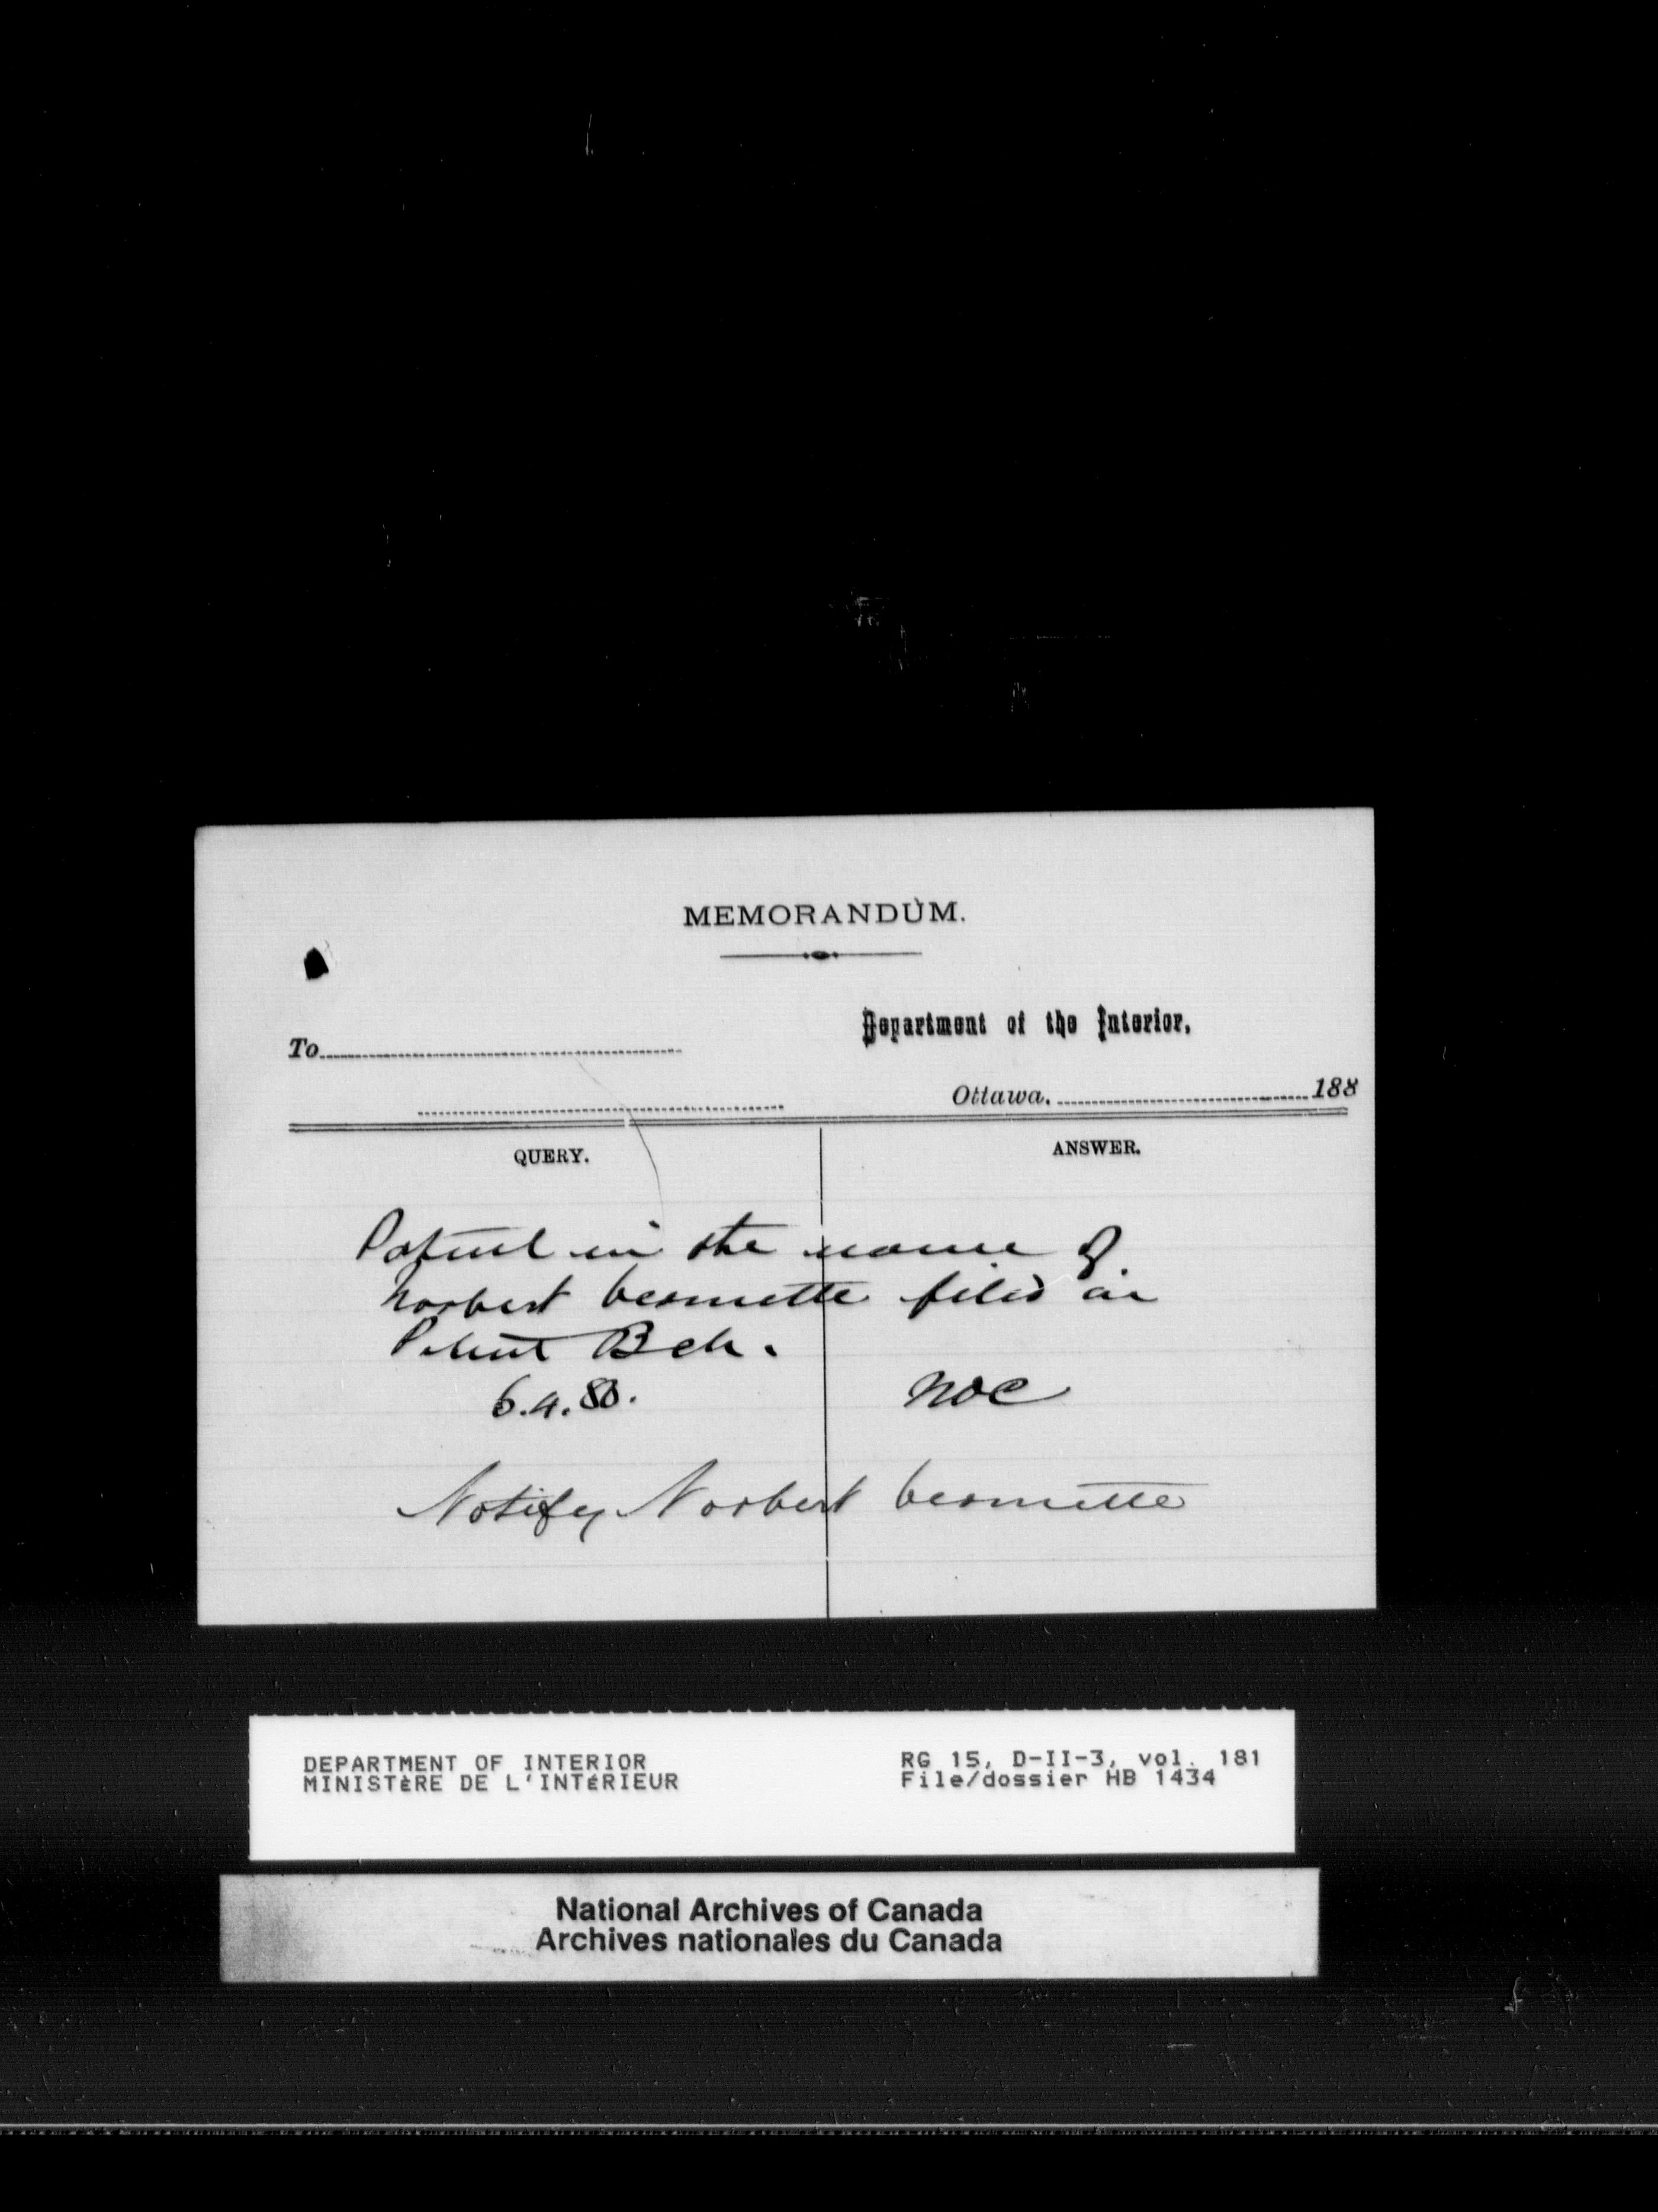 MEMORANDUM.
Department of the Interior.
To
Ottawa. 188
QUERY. ANSWER.
Patent in the name of
Norbert filed in
Patent Bch.
NOC
Notify Norbert
DEPARTMENT OF INTERIOR
MINISTÈRE DE L'INTÉRIEUR
RG 15, D-II-3, vol. 181
File/dossier HB 1434
National Archives of Canada
Archives nationales du Canada